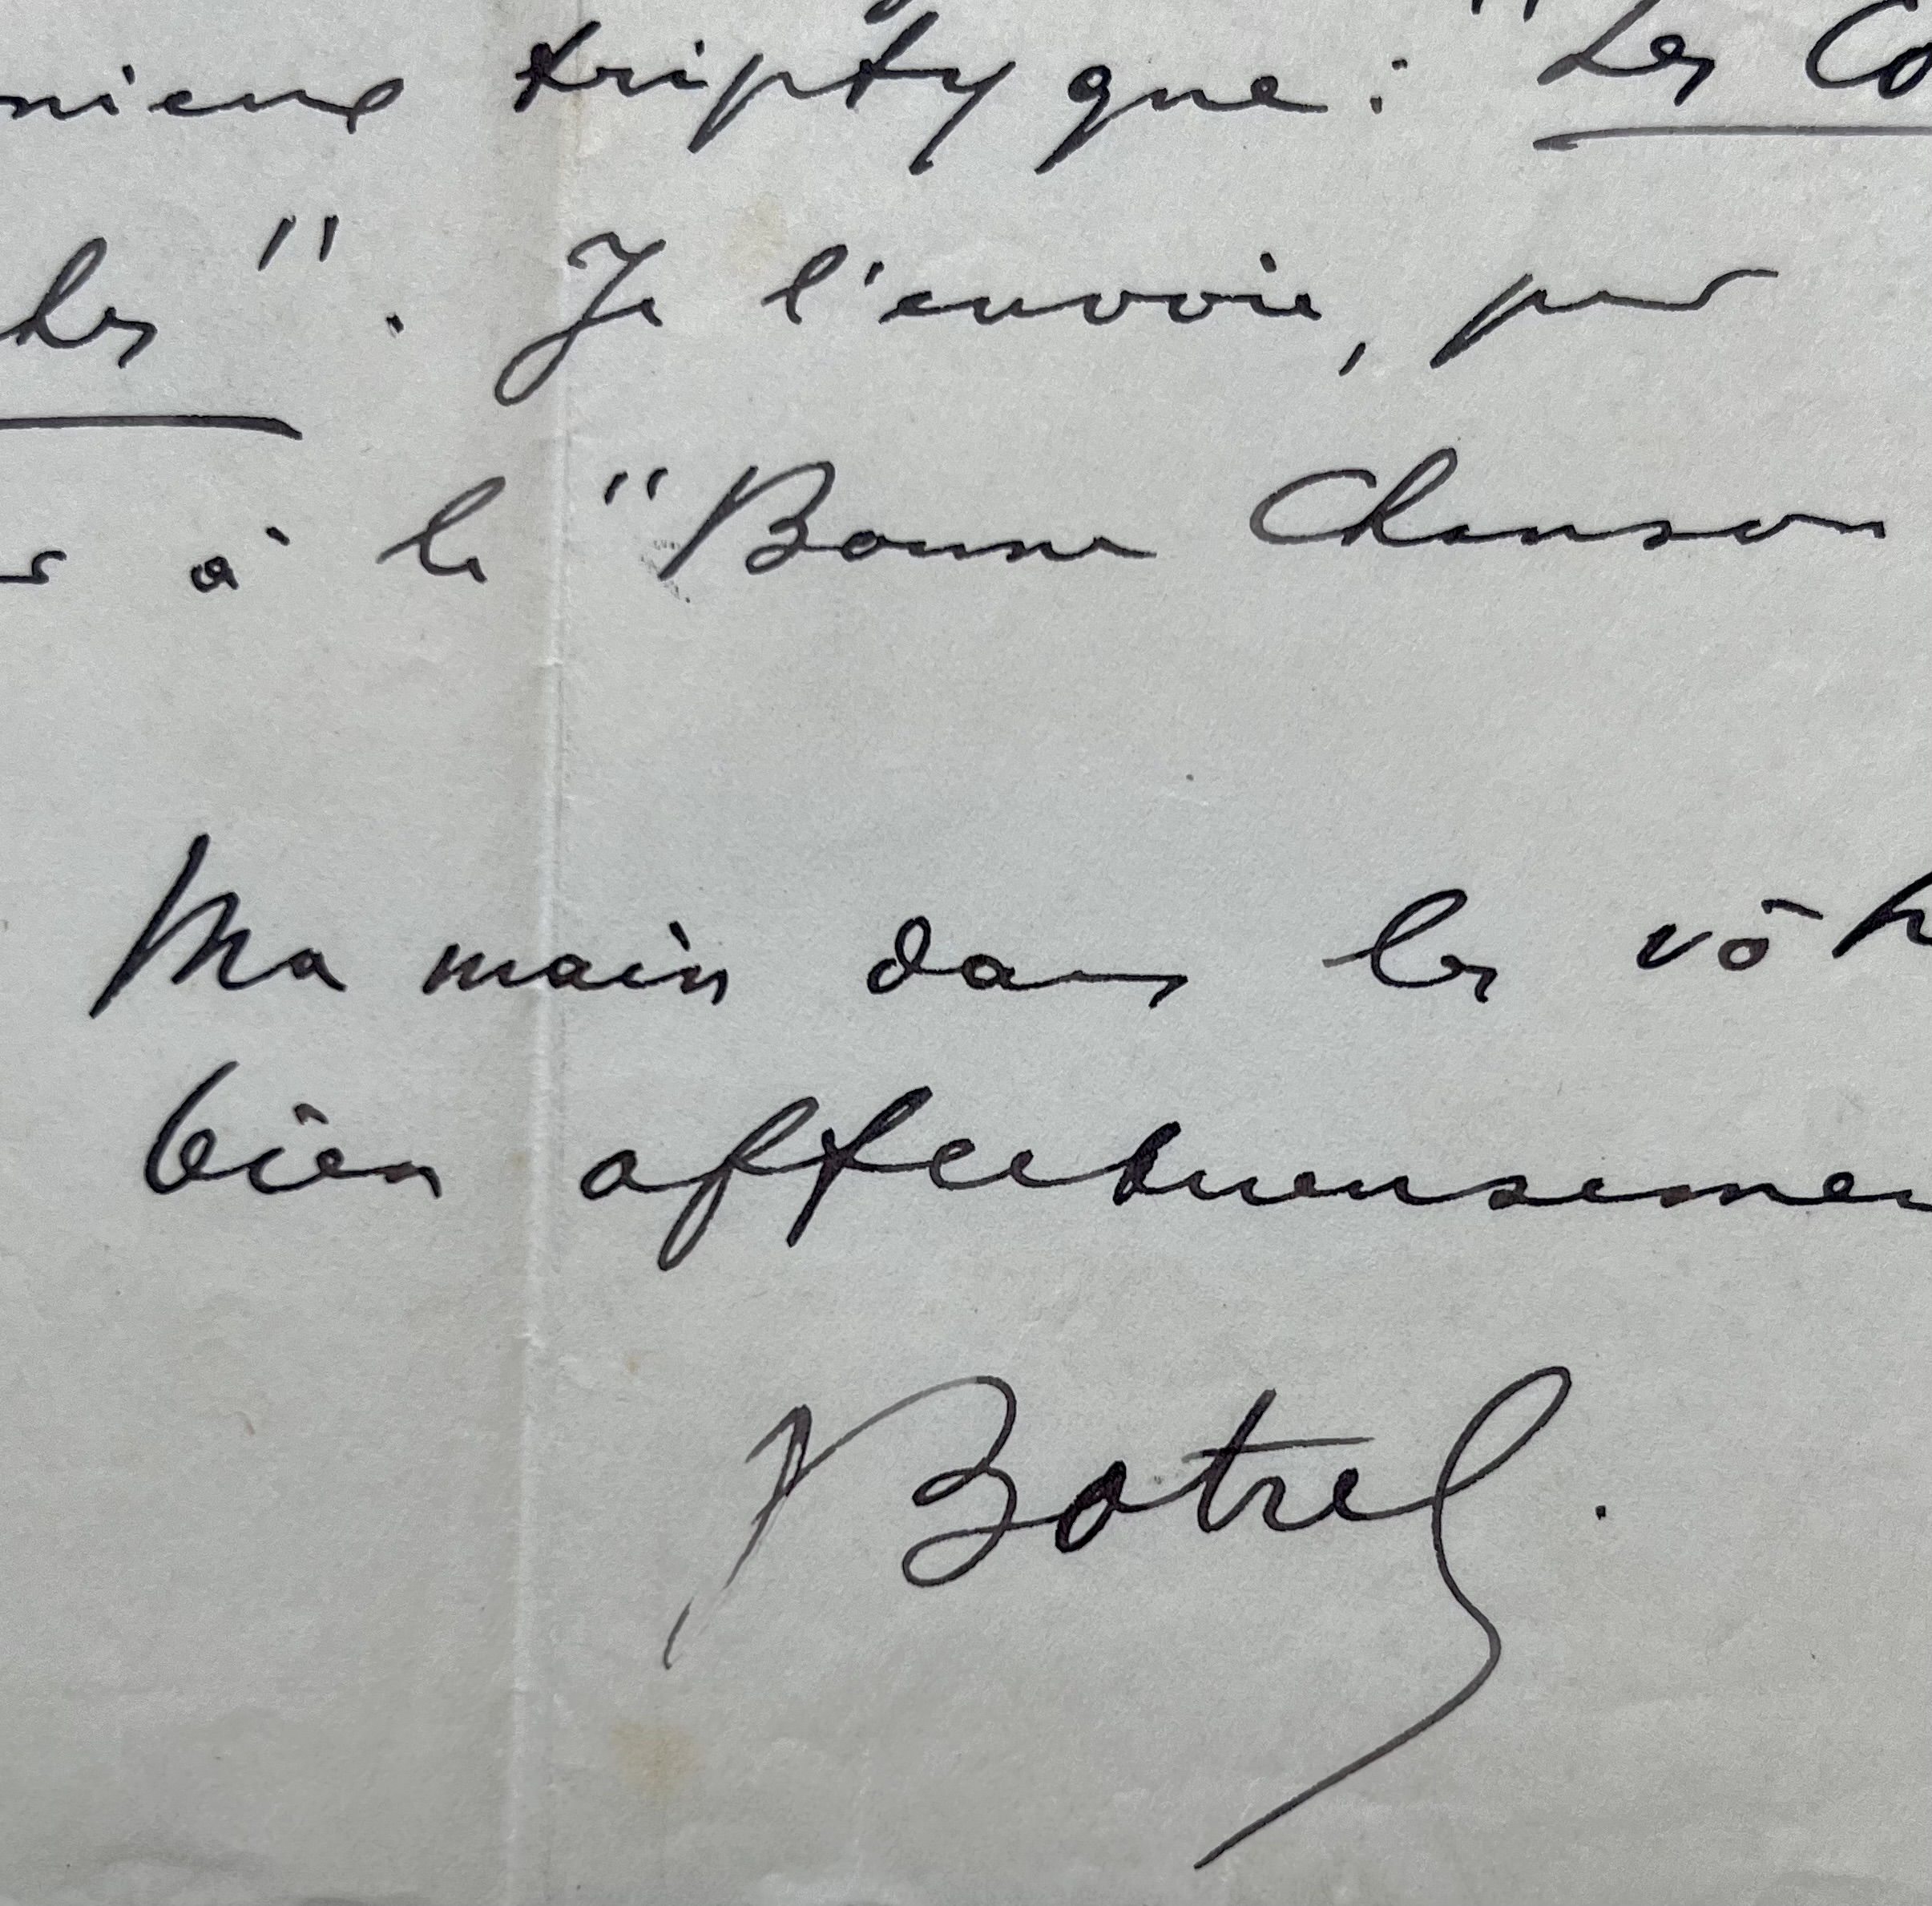 nieux triptyque : "Les Co
ches". Je l'envoie, par
r à la "Bonne Chanson
Ma main dans les vôtr
bien affectueusemen
Botrel.